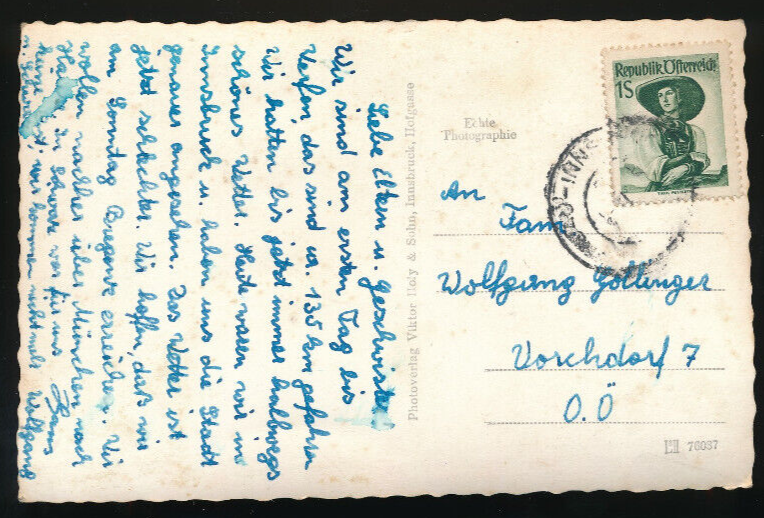 Liebe Eltern u. Geschwister
Wir sind am ersten Tag bis
Werfen, das sind ca. 135 km gefahren
Wir hatten bis jetzt immer halbwegs
schönes Wetter. Heute waren wir in
Innsbruck u. haben uns die Stadt
genauer angesehen. Das Wetter ist
jetzt schlechter. Wir hoffen, daß wir
am Sonntag Bregenz erreichen. Wir
wollen nachher über München nach
Hause. in Schwaz war für uns Hans
keine Zeit, wir kommen nicht mehr Wolfgang
Photoverlag Viktor Holy & Sohn, Innsbruck, Hofgasse
Echte
Photographie
Republik Österreich
1S
INNS
An
Fam
Wolfgang Göllinger
Vorchdorf 7
O.Ö
76037